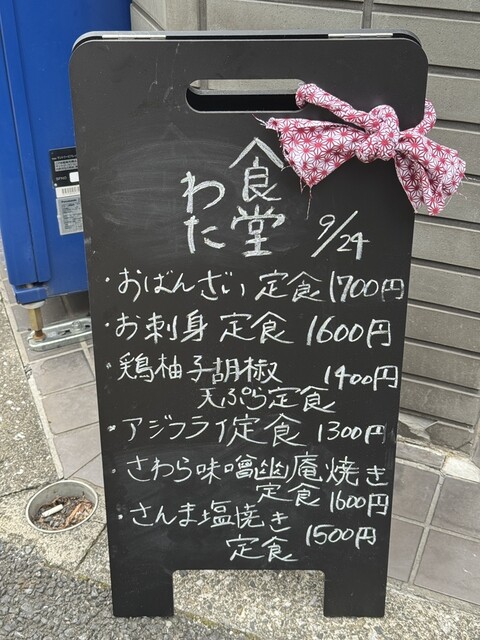 食堂
わた
9/24
・おばんざい定食1700円
・お刺身定食1600円
・鶏柚子胡椒 1400円
天ぷら定食
・アジフライ定食1300円
・さわら味噌幽庵焼き
定食1600円
・さんま塩焼き
定食1500円